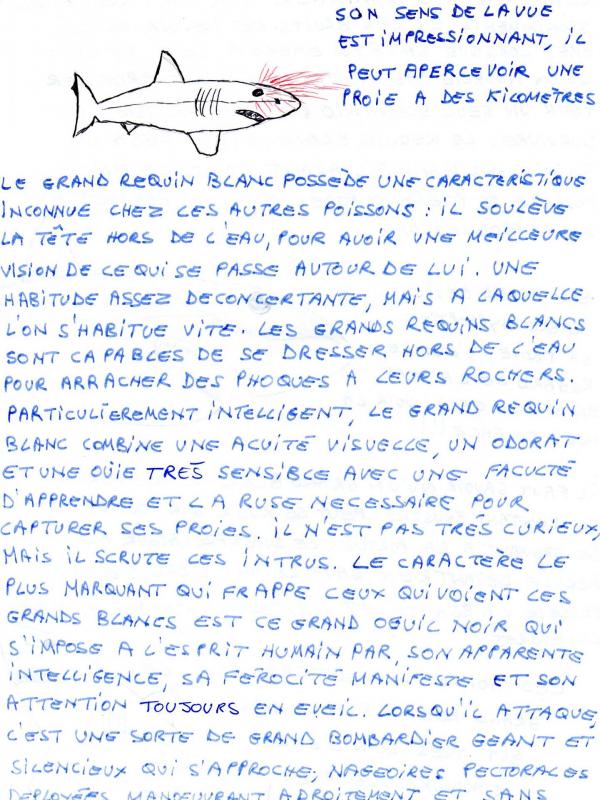 SON SENS DE LA VUE
EST IMPRESSIONNANT, IL
PEUT APERCEVOIR UNE
PROIE A DES KILOMETRES
LE GRAND REQUIN BLANC POSSÈDE UNE CARACTERISTIQUE
INCONNUE CHEZ LES AUTRES POISSONS : IL SOULÈVE
LA TÊTE HORS DE L'EAU, POUR AVOIR UNE MEILLEURE
VISION DE CE QUI SE PASSE AUTOUR DE LUI. UNE
HABITUDE ASSEZ DECONCERTANTE, MAIS A LAQUELLE
L'ON S'HABITUE VITE. LES GRANDS REQUINS BLANCS
SONT CAPABLES DE SE DRESSER HORS DE L'EAU
POUR ARRACHER DES PHOQUES A LEURS ROCHERS.
PARTICULIEREMENT INTELLIGENT, LE GRAND REQUIN
BLANC COMBINE UNE ACUITÉ VISUELLE, UN ODORAT
ET UNE OÜIE TRÈS SENSIBLE AVEC UNE FACULTÉ
D'APPRENDRE ET LA RUSE NECESSAIRE POUR
CAPTURER SES PROIES. IL N'EST PAS TRÈS CURIEUX,
MAIS IL SCRUTE LES INTRUS. LE CARACTÈRE LE
PLUS MARQUANT QUI FRAPPE CEUX QUI VOIENT LES
GRANDS BLANCS EST CE GRAND OEUIL NOIR QUI
S'IMPOSE A L'ESPRIT HUMAIN PAR, SON APPARENTE
INTELLIGENCE, SA FÉROCITÉ MANIFESTE ET SON
ATTENTION TOUJOURS EN EVEIL. LORSQU'IL ATTAQUE,
C'EST UNE SORTE DE GRAND BOMBARDIER GEANT ET
SILENCIEUX QUI S'APPROCHE, NAGEOIRES PECTORALES
DEPLOYÉES MANOEUVRANT ADROITEMENT ET SANS